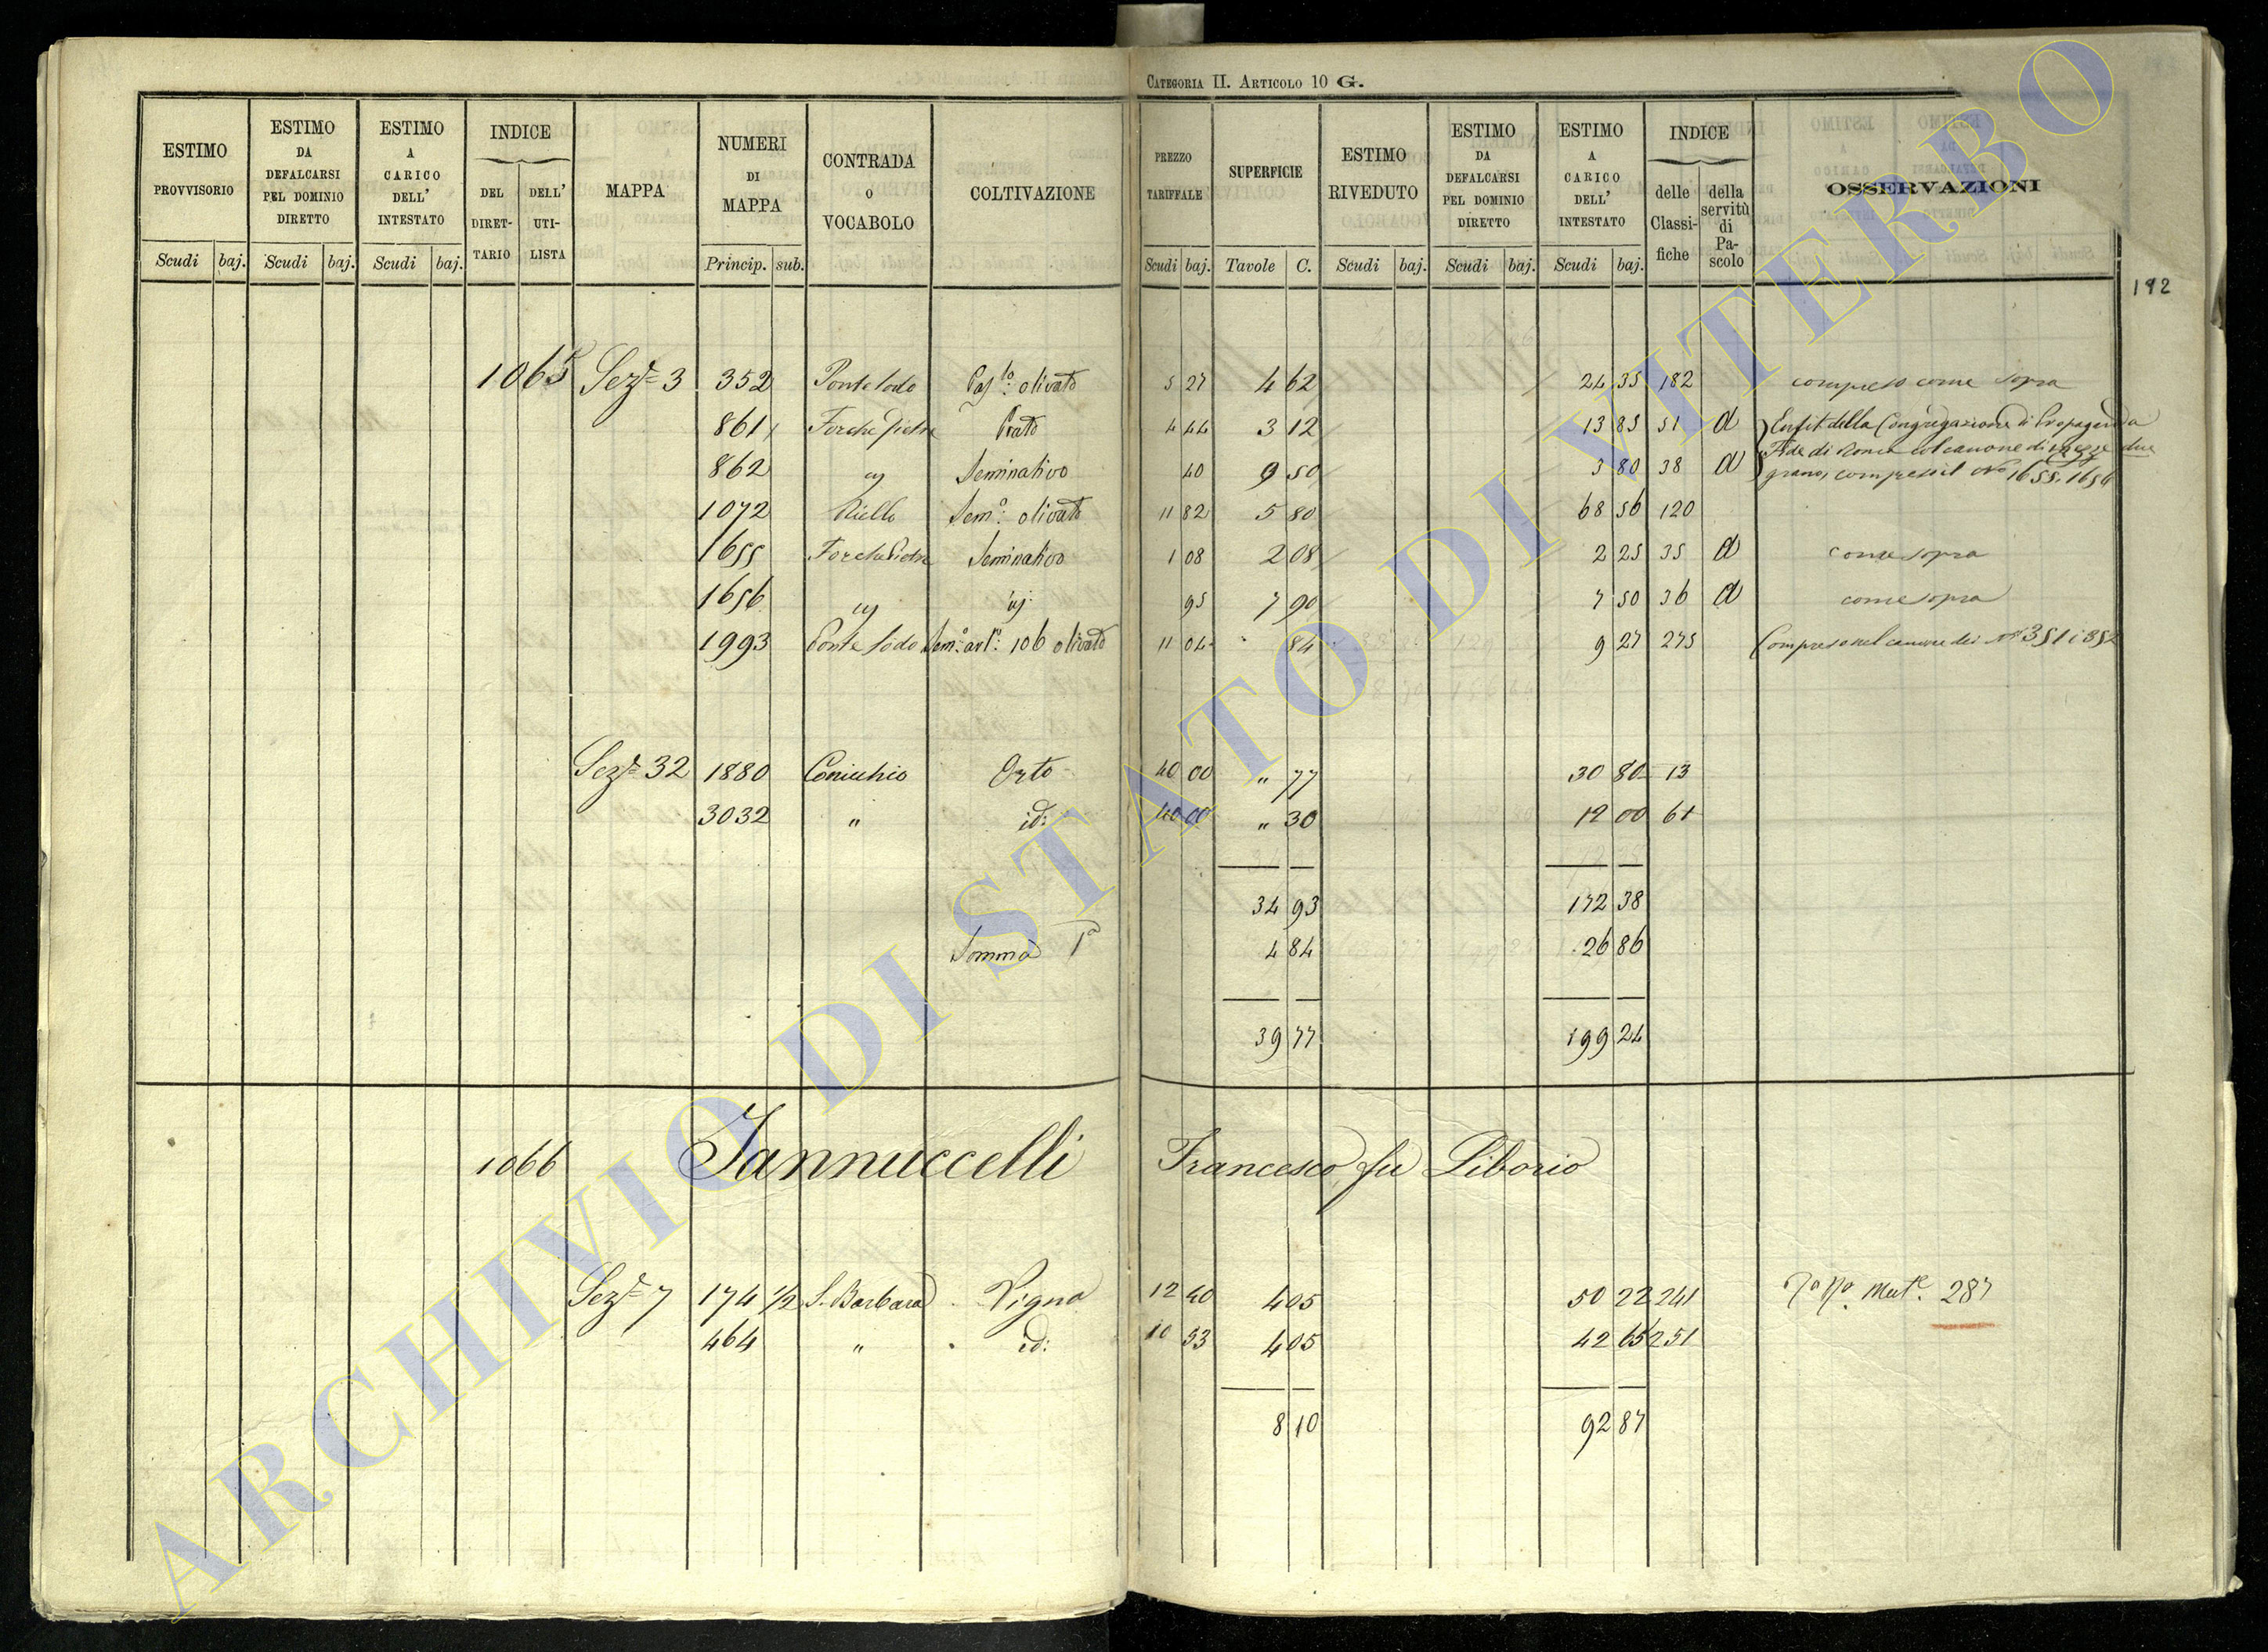 CATEGORIA II. ARTICOLO 10 G.
ESTIMO PROVVISORIO
Scudi baj.
ESTIMO DA DEFALCARSI PEL DOMINIO DIRETTO
Scudi baj.
ESTIMO A CARICO DELL' INTESTATO
Scudi baj.
INDICE
DEL DIRET-TARIO
DELL' UTI-LISTA
MAPPA
NUMERI DI MAPPA
Princip. sub.
CONTRADA O VOCABOLO
COLTIVAZIONE
PREZZO TARIFFALE
Scudi baj.
SUPERFICIE
Tavole C.
ESTIMO RIVEDUTO
Scudi baj.
ESTIMO DA DEFALCARSI PEL DOMINIO DIRETTO
Scudi baj.
ESTIMO A CARICO DELL' INTESTATO
Scudi baj.
INDICE
delle Classi-fiche
della servitù di Pa-scolo
OSSERVAZIONI
192
1065 Sez.e 3 352 Ponte sodo Pas.lo olivato 5 27 4 62 24 35 182 compreso come sopra
861 Forche Pietra Prato 4 44 3 12 13 85 51 a Enfit. della Congregazione di Propaganda
862 id Seminativo 40 9 50 3 80 38 a Fide di Roma col canone di mezze due
grano, compresi il No 1655. 1656
1072 Riello Sem.o olivato 11 82 5 80 68 56 120
1655 Forche Pietra Seminativo 1 08 2 08 2 25 35 a come sopra
1656 id id 95 7 90 7 50 36 a come sopra
1993 Ponte sodo Sem.o arb.o 106 olivato 11 04 84 9 27 275 Compreso nel canone dei Ni 351 e 352
Sez.e 32 1880 Conicchio Orto 40 00 " 77 30 80 13
3032 " id: 40 00 " 30 12 00 61
34 93 172 38
Somma 1a 4 84 26 86
39 77 199 24
1066 Iannuccelli Francesco fu Liborio
Sez.e 7 174 1/2 S. Barbara Vigna 12 40 4 05 50 22 241 287
464 " id: 10 53 4 05 42 65 251
8 10 92 87
ARCHIVIO DI STATO DI VITERBO